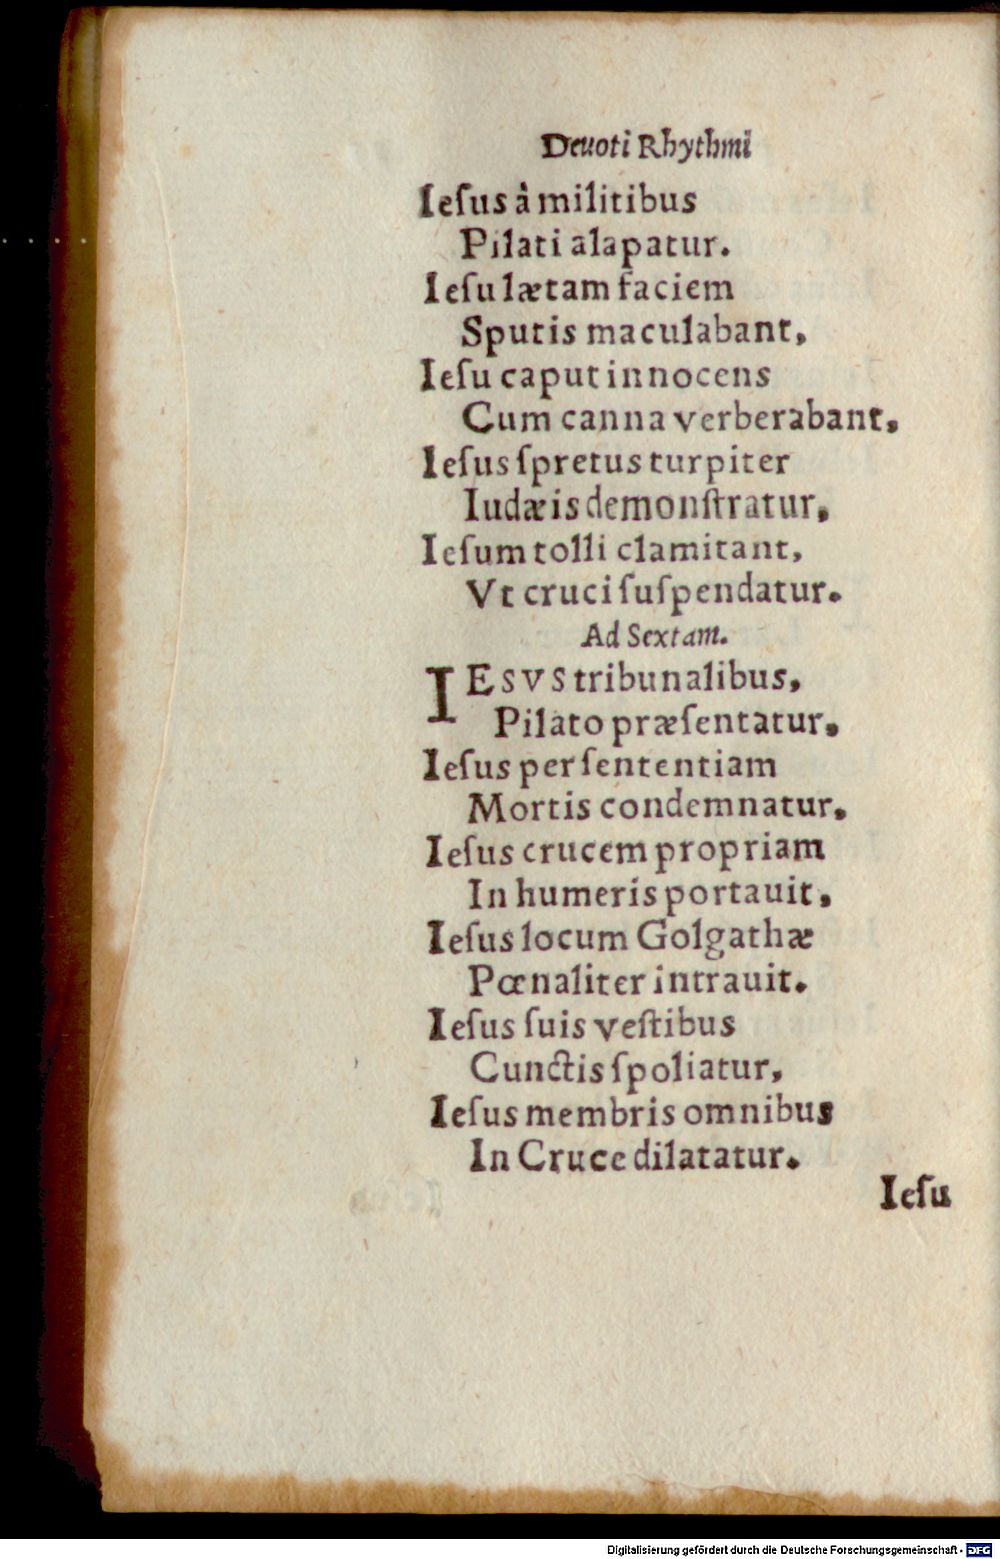 Deuoti Rhythmi
Ieſus à militibus
Pilati alapatur.
Ieſu lætam faciem
Sputis maculabant,
Ieſu caput innocens
Cum canna verberabant,
Ieſus ſpretus turpiter
Iudæis demonſtratur,
Ieſum tolli clamitant,
Vt cruci ſuſpendatur.
Ad Sextam.
IESVS tribunalibus,
Pilato præſentatur,
Ieſus per ſententiam
Mortis condemnatur,
Ieſus crucem propriam
In humeris portauit,
Ieſus locum Golgathæ
Pœnaliter intrauit.
Ieſus ſuis veſtibus
Cunctis ſpoliatur,
Ieſus membris omnibus
In Cruce dilatatur.
Ieſu
Digitalisierung gefördert durch die Deutsche Forschungsgemeinschaft - DFG